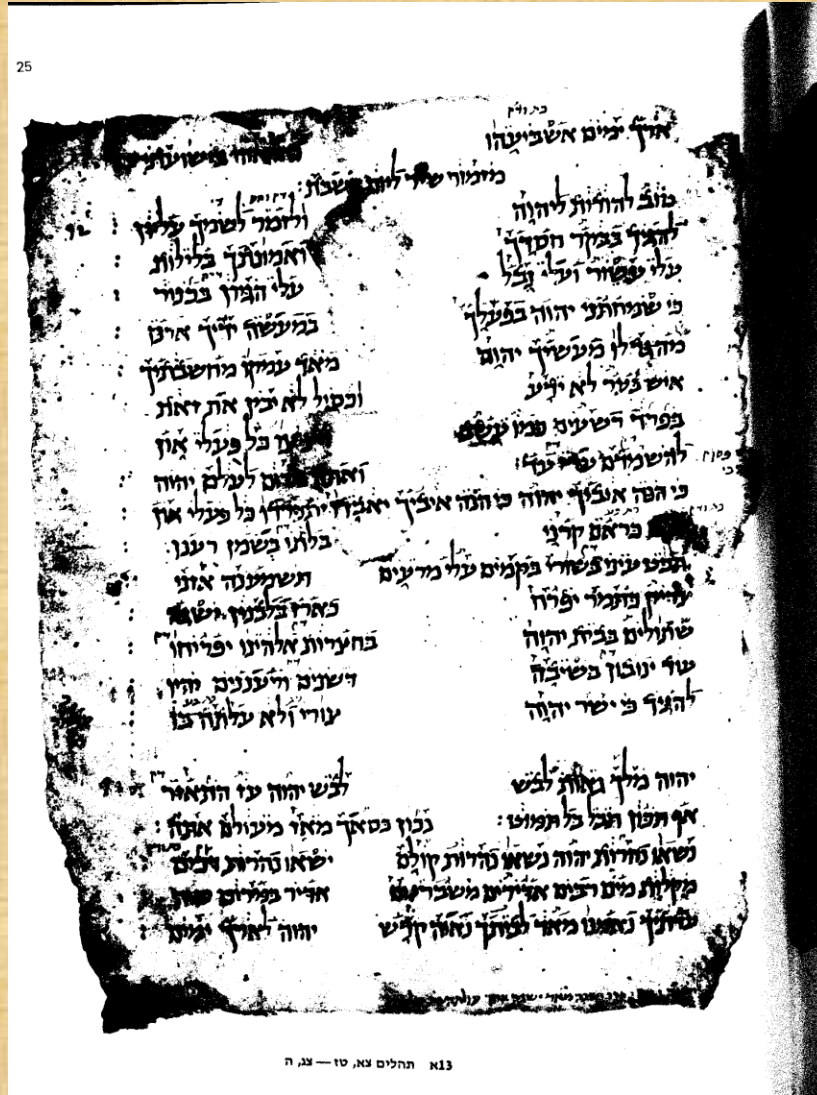 25
ארך ימים אשביעהו בישועתי
מזמור שיר ליום השבת:
טוב להודות ליהוה ולזמר לשמך עליון :
להגיד בבקר חסדך ואמונתך בלילות :
עלי עשור ועלי נבל עלי הגיון בכנור :
כי שמחתני יהוה בפעלך במעשה ידיך ארנן :
מה גדלו מעשיך יהוה מאד עמקו מחשבתיך :
איש בער לא ידע וכסיל לא יבין את זאת
בפרח רשעים כמו עשב כל פעלי און
להשמדם עדי עד: ואתה לעלם יהוה :
כי הנה איביך יהוה כי הנה איביך יאבדו יתפרדו כל פעלי און :
כראם קרני בלתי בשמן רענן :
תבט עיני בשורי בקמים עלי מרעים תשמענה אזני :
צדיק כתמר יפרח כארז בלבנון ישגה :
שתולים בבית יהוה בחצרות אלהינו יפריחו :
עוד ינובון בשיבה דשנים ורעננים יהיו :
להגיד כי ישר יהוה צורי ולא עלתה בו
יהוה מלך גאות לבש לבש יהוה עז התאזר
אף תכון תבל בל תמוט : נכון כסאך מאז מעולם אתה :
נשאו נהרות יהוה נשאו נהרות קולם ישאו נהרות דכים
מקלות מים רבים אדירים משברי ים אדיר במרום יהוה
עדתיך נאמנו מאד לביתך נאוה קדש יהוה לארך ימים :
13א תהלים צא, טז — צג, ה